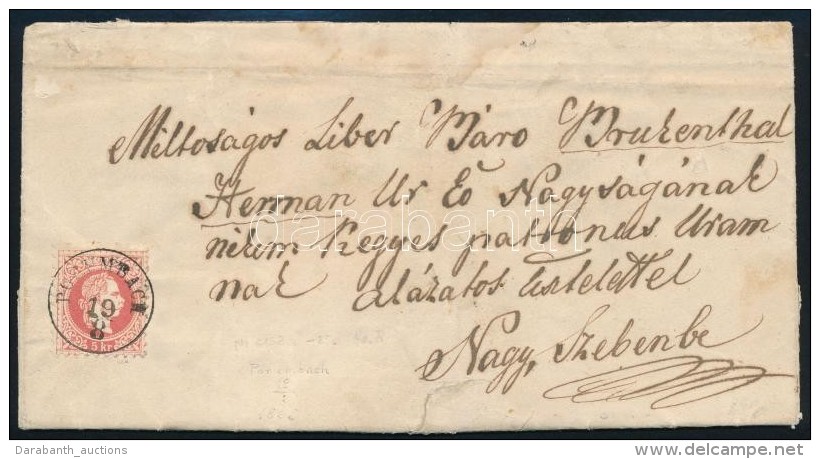 Méltoságos Liber Báro Brukenthal
Herman Ur Eö Nagyságának
nékem Kegyes patronus Uram
nak alázatos tisztelettel
Nagy, Szebenbe
19
8
5 kr
darabanth
Darabanth_auctions
www.delcampe.net